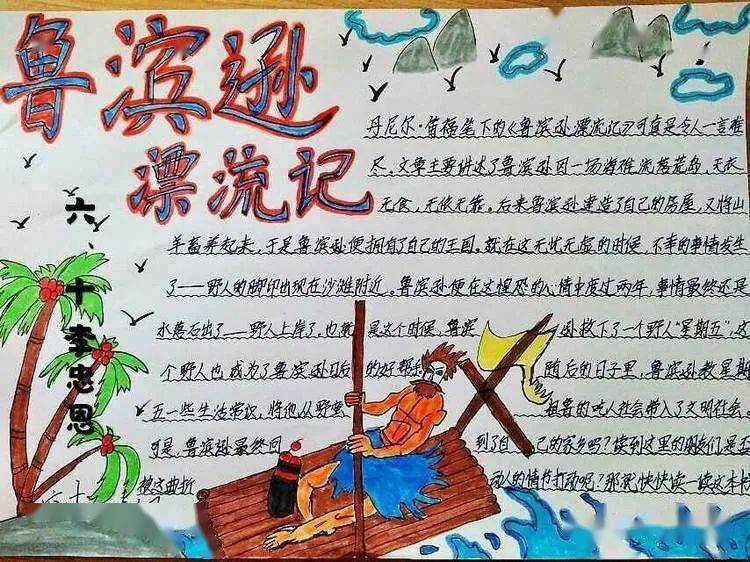 鲁滨逊
漂流记
六、十 李忠恩
丹尼尔·笛福笔下的《鲁滨逊漂流记》可真是令人一言难
尽。文章主要讲述了鲁滨逊因一场海难流落荒岛，无衣
无食，无依无靠。后来鲁滨逊建造了自己的房屋，又将山
羊畜养起来，于是鲁滨逊便拥有了自己的王国。就在这无忧无虑的时候，不幸的事情发生
了——野人的脚印出现在沙滩附近。鲁滨逊便在这惶恐的心情中度过两年，事情虽然还是
水落石出了——野人上岸了，也就是这个时候，鲁滨逊救下了一个野人“星期五”，这
个野人也成为了鲁滨逊日后的好帮 随后的日子里，鲁滨逊教星期
五一些生活常识，将他从野蛮 粗鲁的吃人社会带入了文明社会，
可是，鲁滨逊最终回到了自己的家乡吗？读到这里的朋友们是否
被这曲折 动人的情节打动呢？那就快快读一读这本书
六十